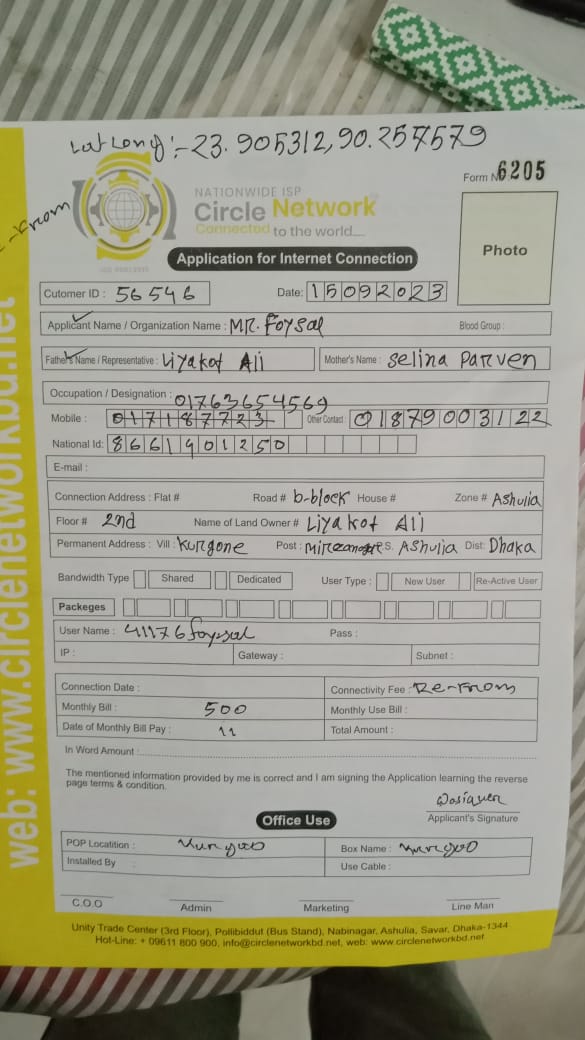 Lat Long :- 23.905312,90.257579
Form No 6205
NATIONWIDE ISP
Circle Network
Connected to the world....
ISO 9001:2015
Application for Internet Connection
Photo
Cutomer ID : 56546
Date: 15092023
Applicant Name / Organization Name : MR. Foysal
Blood Group :
Father's Name / Representative : Liyakot Ali
Mother's Name : Selina Parven
Occupation / Designation : 01763654569
Mobile : 0171877723
Other Contact : 01879003122
National Id: 8661901250
E-mail :
Connection Address : Flat # Road # b-block House # Zone # Ashulia
Floor # 2nd Name of Land Owner # Liyakot Ali
Permanent Address : Vill : Kurgone Post : P.S. Ashulia Dist: Dhaka
Bandwidth Type Shared Dedicated User Type : New User Re-Active User
Packeges
User Name : 41176foysal Pass :
IP : Gateway : Subnet :
Connection Date : Connectivity Fee : Re-from
Monthly Bill : 500 Monthly Use Bill :
Date of Monthly Bill Pay : 11 Total Amount :
In Word Amount :
The mentioned information provided by me is correct and I am signing the Application learning the reverse
page terms & condition.
Applicant's Signature
Office Use
POP Locatition : Box Name :
Installed By : Use Cable :
C.O.O Admin Marketing Line Man
Unity Trade Center (3rd Floor), Pollibiddut (Bus Stand), Nabinagar, Ashulia, Savar, Dhaka-1344
Hot-Line: + 09611 800 900, info@circlenetworkbd.net, web: www.circlenetworkbd.net
web: www.circlenetworkbd.net